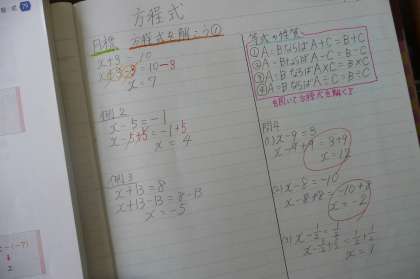 方程式
目標 方程式を解こう①
x+3=10
x+3-3=10-3
x=7
例2
x-5=-1
x-5+5=-1+5
x=4
例3
x+13=8
x+13-13=8-13
x=-5
等式の性質
①A=BならばA+C=B+C
②A=BならばA-C=B-C
③A=BならばA×C=B×C
④A=BならばA÷C=B÷C
を用いて方程式を解くよ
問4
(1)x-9=3
x-9+9=3+9
x=12
(2)x-8=-10
x-8+8=-10+8
x=-2
(3)x-1/2=1/2
x-1/2+1/2=1/2+1/2
x=1